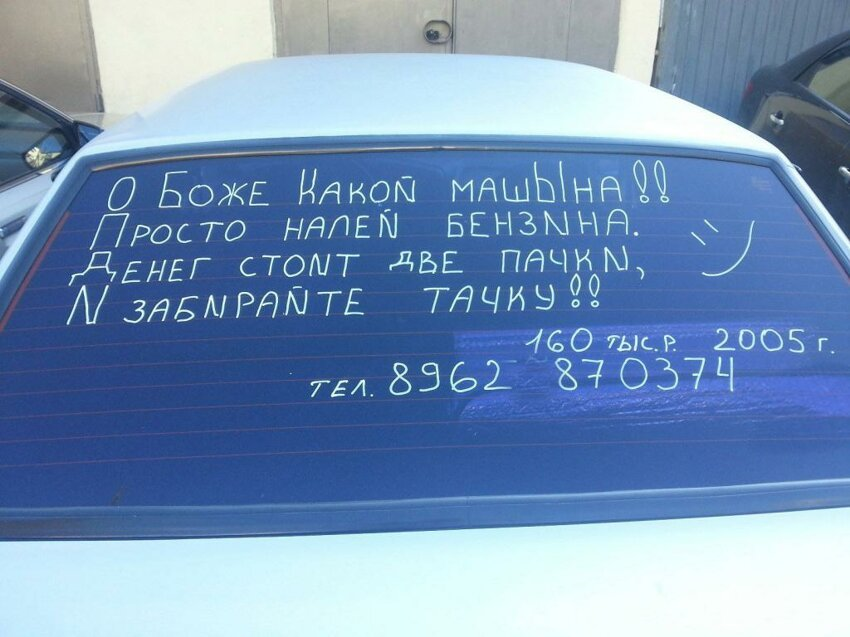 О БОЖЕ КАКОЙ МАШЫНА!!
ПРОСТО НАЛЕЙ БЕНЗИНА.
ДЕНЕГ СТОИТ ДВЕ ПАЧКИ,
И ЗАБИРАЙТЕ ТАЧКУ!!
160 ТЫС.Р. 2005 г.
ТЕЛ. 8962 870374